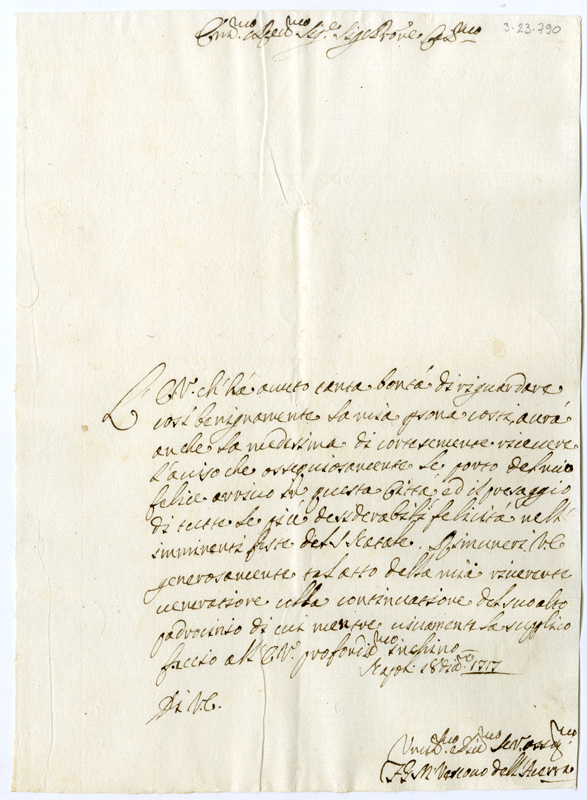 3-23-790
Em.mo e Re.mo Sig.re Sig.re Pron.e Col.mo
L'E.V. ch'há avuto tanta bontá di riguardare
cosí benignamente la mia psona costá, avrá
anche la medesima di cortesemente ricevere
l'aviso che ossequiosamente le porto del mio
felice arrivo in questa Cittá, ed il presaggio
di tutte le piú desiderabili felicitá nell'
imminenti feste del S. Natale. Rimuneri V.E.
generosamente tal atto della mia riverente
veneratione colla continuatione del suo alto
padrocinio di cui mentre vivamente la supplico
faccio all'E.V. profondis.mo inchino
Napoli 18 Xbre 1717
Di V.E.
Um.mo e Dev.mo Ser. osseq.mo
F. G. M. Vescovo dell'Acerra